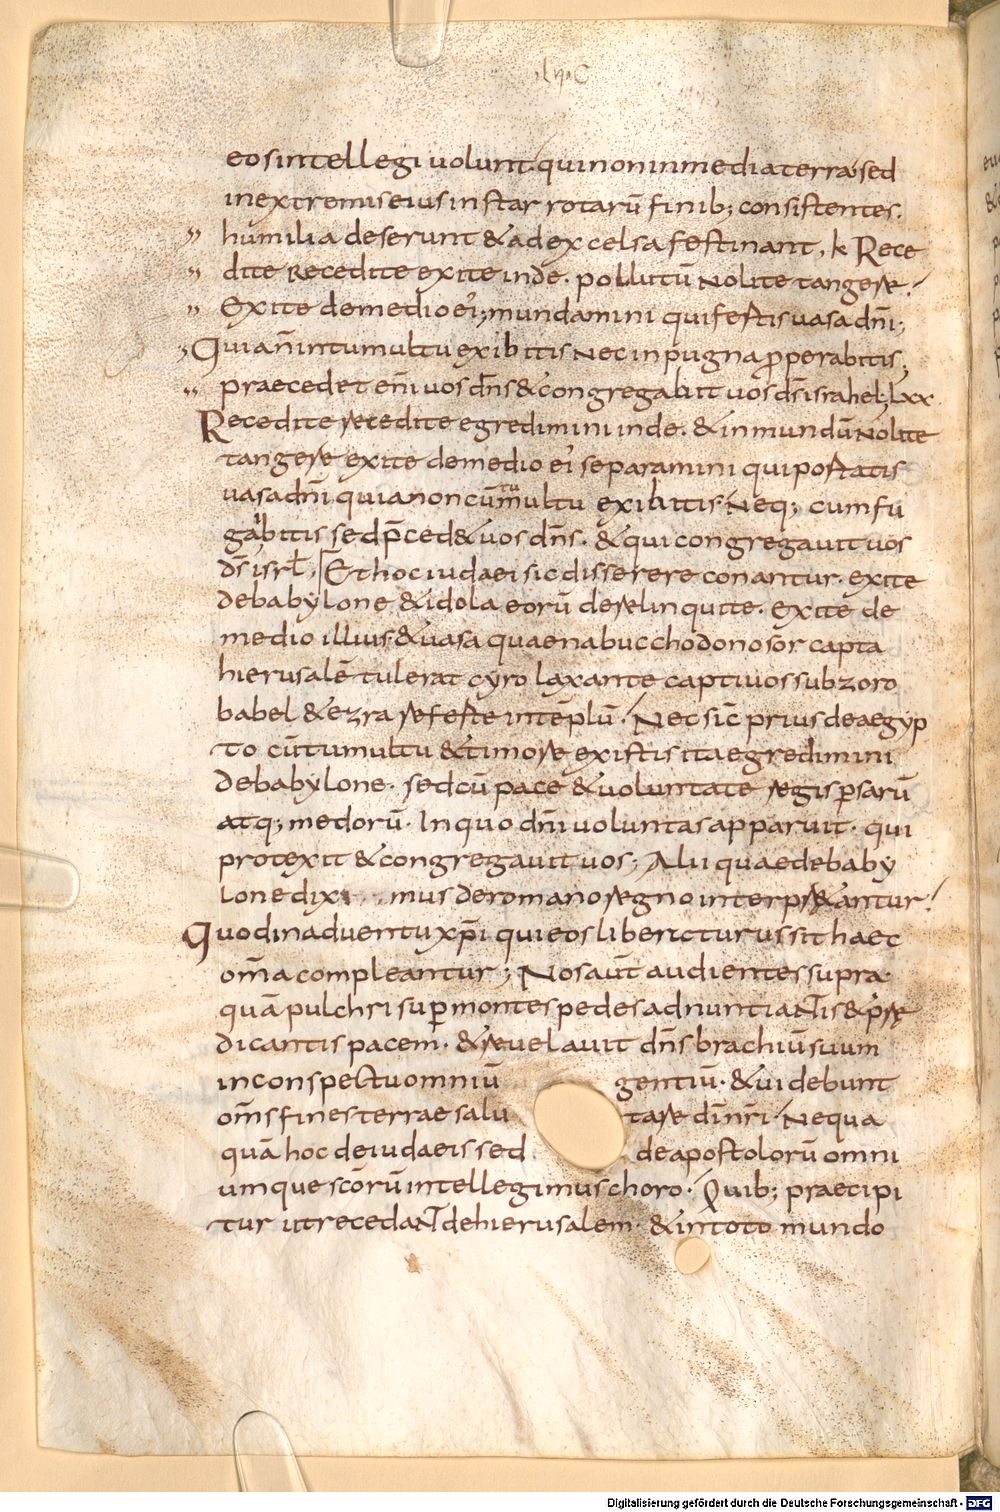 eos intellegi uolunt. qui non in media terra sed
in extremis eius in star rotarū finib; consistentes.
humilia deserunt & ad excelsa festinant, k Rece
dite Recedite exite inde. pollutū Nolite tangere!
Exite de medio ei'; mundamini qui fertis uasa dn̄i;
Quia n̄ in tumultu exibitis Nec in pugna ꝓperabitis;
praecedet em̄ uos dn̄s & congregabit uos ds̄ israhel; lxx.
Recedite recedite egredimini inde. & inmundū Nolite
tangere exite de medio ei' separamini qui portatis
uasa dn̄i quia non cū tumultu exibitis. Neq; cum fu
ga abitis sed p̄ced& uos dn̄s. & qui congregauit uos
ds̄ isrl̄; Et hoc iudaei sic disserere conantur. exite
de babylone & idola eorū derelinquite. exite de
medio illius. & uasa quae nabucchodonosor capta
hierusalē tulerat cyro laxante captiuos sub zoro
babel & ezra referte in tēplū. Nec sic̄ prius de aegyp
to cū tumultu & timore existis ita egredimini
de babylone. sed cū pace & uoluntate regis ꝑsarū
atq; medorū. In quo dn̄i uoluntas apparuit. qui
protexit & congregauit uos; Alii quae de baby
lone dixi mus de romano regno interpr&antur!
Quod in aduentu xp̄i qui eos liberaturus sit haec
om̄a compleantur; Nos aut̄ audientes supra.
quā pulchri suꝑ montes pedes adnuntiantis & p̄rę
dicantis pacem. & reuelauit dn̄s brachiū suum
in conspectu omniū gentiū. & uidebunt
om̄s fines terrae salu tare dn̄i nr̄i. Nequa
quā hoc de iudaeis sed de apostolorū omni
umque sc̄orū intellegimus choro. Quib; praecipi
tur ut recedant de hierusalem. & in toto mundo
Digitalisierung gefördert durch die Deutsche Forschungsgemeinschaft - DFG